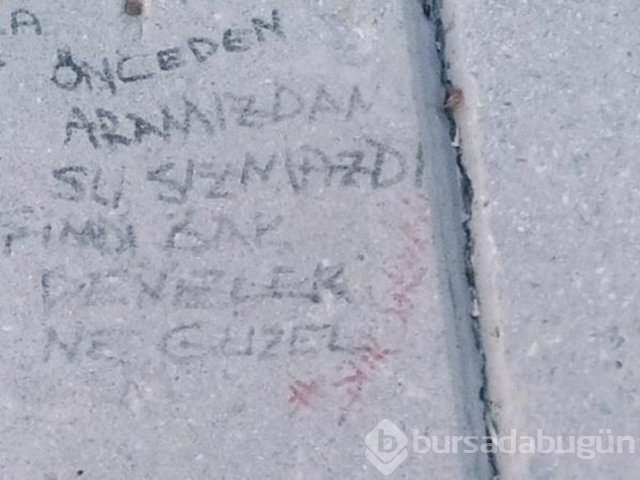 ÖNCEDEN
ARAMIZDAN
SU SIZMAZDI
ŞİMDİ BAK
DENELEK
NE GÜZEL
bursadabugün